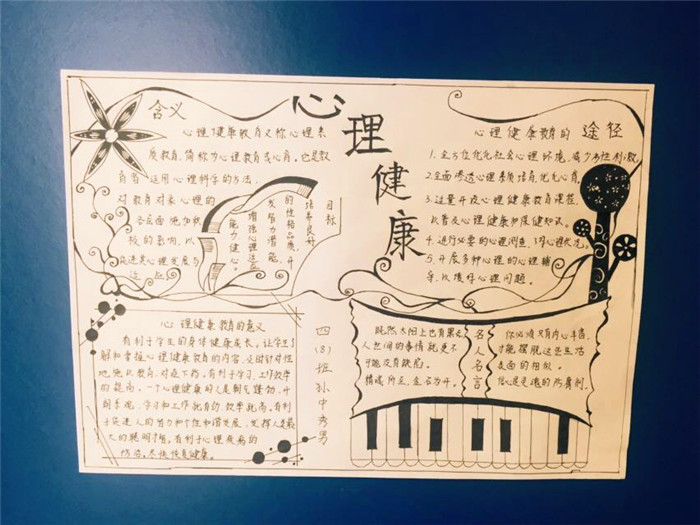 心理健康
含义
心理健康教育又称心理素
质教育，简称为心理教育或心育。它是教
育者运用心理科学的方法，
对教育对象心理的
各层面施加积
极的影响，以
促进其心理发展与
适应
目标
培养良好
的性格品质，开
发智力潜能，
增强心理适应
能力，
心理健康教育的途径
1.全方位优化社会心理环境，减少
2.全面渗透心理素质培育，优化心育，
3.适量开设心理健康教育课程，
以普及心理健康和保健知识。
4.进行必要的心理测查，了解心理状况。
5.开展多种心理的心理辅
导，以援好心理问题。
心理健康教育的意义
有利于学生的身体健康成长，让学生了
解和掌握心理健康教育的内容，及时针对性
地施以教育，对症下药，有利于学习、工作效率
的提高。一个心理健康的人是朝气蓬勃、开
朗乐观，学习和工作就有劲，效率就高，有利
于促进人的智力和个性和谐发展，发挥人是最
大的聪明才智。有利于心理疾病的
防治，尽快恢复健康。
四(8)班 孙中秀男
既然太阳上也有黑点，
人世间的事情就更不
可能没有缺陷。
精诚所至，金石为开。
名人名言
你必须又有内心丰富，
才能摆脱这些生活
表面的相似。
信心是灵魂的防腐剂。